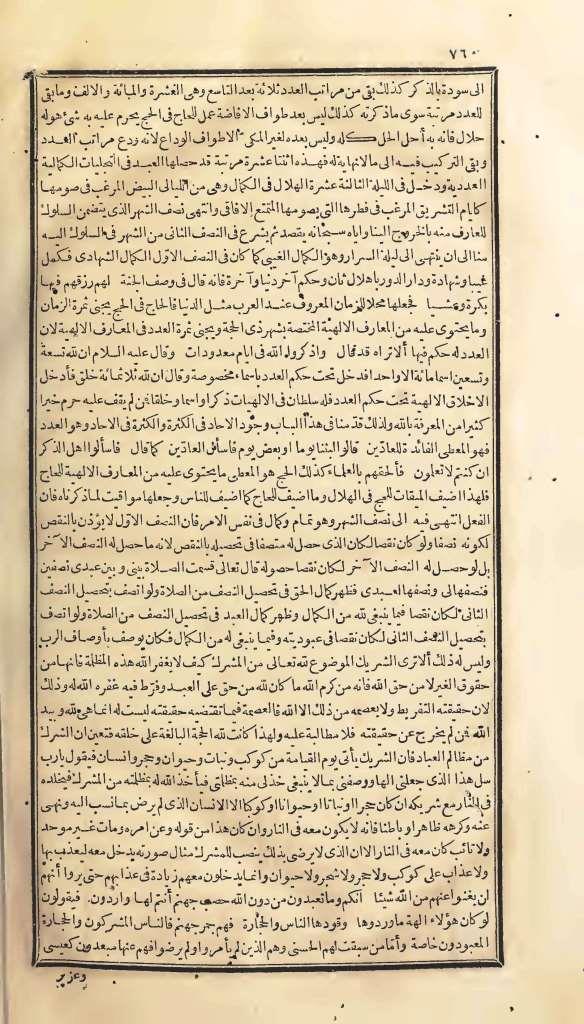 ٧٦٠
الى سودة بالذكر كذلك بقى من مراتب العدد ثلاثة بعد التاسع وهى العشرة والمائة والالف وما بقى
للعدد مرتبة سوى ما ذكرته كذلك ليس بعد طواف الافاضة عمل للحاج فى الحج يحرم عليه به شئ هو له
حلال فانه به أحل الحل كله وليس بعده لغير المكى الاطواف الوداع لانه ودع مراتب العدد
وبقى التركيب فيه الى ما لانهاية له فهذه اثنتا عشرة مرتبة قد حصلها العبد فى التجليات الكمالية
العددية ودخل فى الليلة الثالثة عشرة الهلال فى الكمال وهى من الليالى البيض المرغب فى صومها
كايام التشريق المرغب فى فطرها التى يصومها المتمتع الافاقى وانتهى نصف الشهر الذى يتضمن السلوك
للعارف منه بالخروج الينا واياه سبحانه يقصد ثم يشرع فى النصف الثانى من الشهر فى السلوك اليه
منا الى ان ينتهى الى ليلة السرار وهو الكمال الغيبى كما كان فى النصف الاول الكمال الشهادى فكمل
غيبا وشهادة ودار الدور باهلال ثان وحكم آخر دنيا وآخرة فانه قال فى وصف الجنة لهم رزقهم فيها
بكرة وعشيا فجعلها محلا للزمان المعروف عند العرب مثل الدنيا فالحاج فى الحج يجنى ثمرة الزمان
وما يحتوى عليه من المعارف الالهية المختصة بشهر ذى الحجة ويجنى ثمرة العدد فى المعارف الالهية لان
العدد له حكم فيها ألا تراه قد قال واذكروا الله فى ايام معدودات وقال عليه السلام ان لله تسعة
وتسعين اسما مائة الا واحد افدخل تحت حكم العدد باسماء مخصوصة وقال ان لله ثلثمائة خلق فأدخل
الاخلاق الالهية تحت حكم العدد فله سلطان فى الالهيات ذكرا واسما وخلقا فمن لم يقف عليه حرم خيرا
كثيرا من المعرفة بالله ولذلك قدمنا فى هذا الباب وجود الاحاد فى الكثرة والكثرة فى الاحاد وهو العدد
فهو المعطى الفائدة للعادين قالوا لبثنا يوما او بعض يوم فاسأل العادين كما قال فاسألوا اهل الذكر
ان كنتم لا تعلمون فألحقهم بالعلماء كذلك الحج هو المعطى ما يحتوى عليه من المعارف الالهية للحاج
فلهذا اضيف الميقات للحج فى الهلال وما اضيف للحاج كما اضيف للناس وجعلها مواقيت لما ذكرناه فان
الفعل انتهى فيه الى نصف الشهر وهو تمام وكمال فى نفس الامر فان النصف الاول لا يؤذن بالنقص
لكونه نصفا ولو كان نقصا لكان الذى حصل له متصفا فى تحصيله بالنقص لانه ما حصل له النصف الآخر
بل لو حصل له النصف الآخر لكان نقصا حصوله قال تعالى قسمت الصلاة بينى وبين عبدى نصفين
فنصفها لى ونصفها لعبدى فظهر كمال الحق فى تحصيل النصف من الصلاة ولو اتصف بتحصيل النصف
الثانى لكان نقصا فيما ينبغى لله من الكمال وظهر كمال العبد فى تحصيل النصف من الصلاة ولو اتصف
بتحصيل النصف الثانى لكان نقصا فى عبوديته وفيما ينبغى له من الكمال فكان يوصف بأوصاف الرب
وليس له ذلك ألا ترى الشريك الموضوع لله تعالى من المشرك كيف لا يغفر الله هذه المظلمة فانها من
حقوق الغير لا من حق الله فانه من كرم الله ما كان لله من حق على العبد وفرط فيه غفره الله له وذلك
لان حقيقته التفريط ولا يعصمه من ذلك الا الله فالعصمة فيما تقتضيه حقيقته ليست له انما هى لله وبيد
الله فمن لم يخرج عن حقيقته فلا مطالبة عليه ولهذا كانت لله الحجة البالغة على خلقه فتعين ان الشرك
من مظالم العباد فان الشريك يأتى يوم القيامة من كوكب ونبات وحيوان وحجر وانسان فيقول يارب
سل هذا الذى جعلنى الها ووصفنى بما لا ينبغى خذ لى منه بمظلمتى فيأخذ الله له بمظلمته من المشرك فيخلده
فى النار مع شريكه ان كان حجرا او نباتا او حيوانا او كوكبا الا الانسان الذى لم يرض بما نسب اليه ونهى
عنه وكرهه ظاهرا وباطنا فانه لا يكون معه فى النار وان كان هذا من قوله وعن امره ومات غير موحد
ولا تائب كان معه فى النار الا ان الذى لا يرضى بذلك ينصب للمشرك مثال صورته يدخل معه ليعذب بها
ولا عذاب على كوكب ولا حجر ولا شجر ولا حيوان وانما يدخلون معهم زيادة فى عذابهم حتى يروا أنهم
لن يغنوا عنهم من الله شيئا انكم وما تعبدون من دون الله حصب جهنم أنتم لها واردون. فيقولون
لو كان هؤلاء الهة ما وردوها وقودها الناس والحجارة فهم جمر جهنم فالناس المشركون والحجارة
المعبودون خاصة وأما من سبقت لهم الحسنى وهم الذين لم يأمروا ولم يرضوا فهم عنها مبعدون كعيسى
وعزير